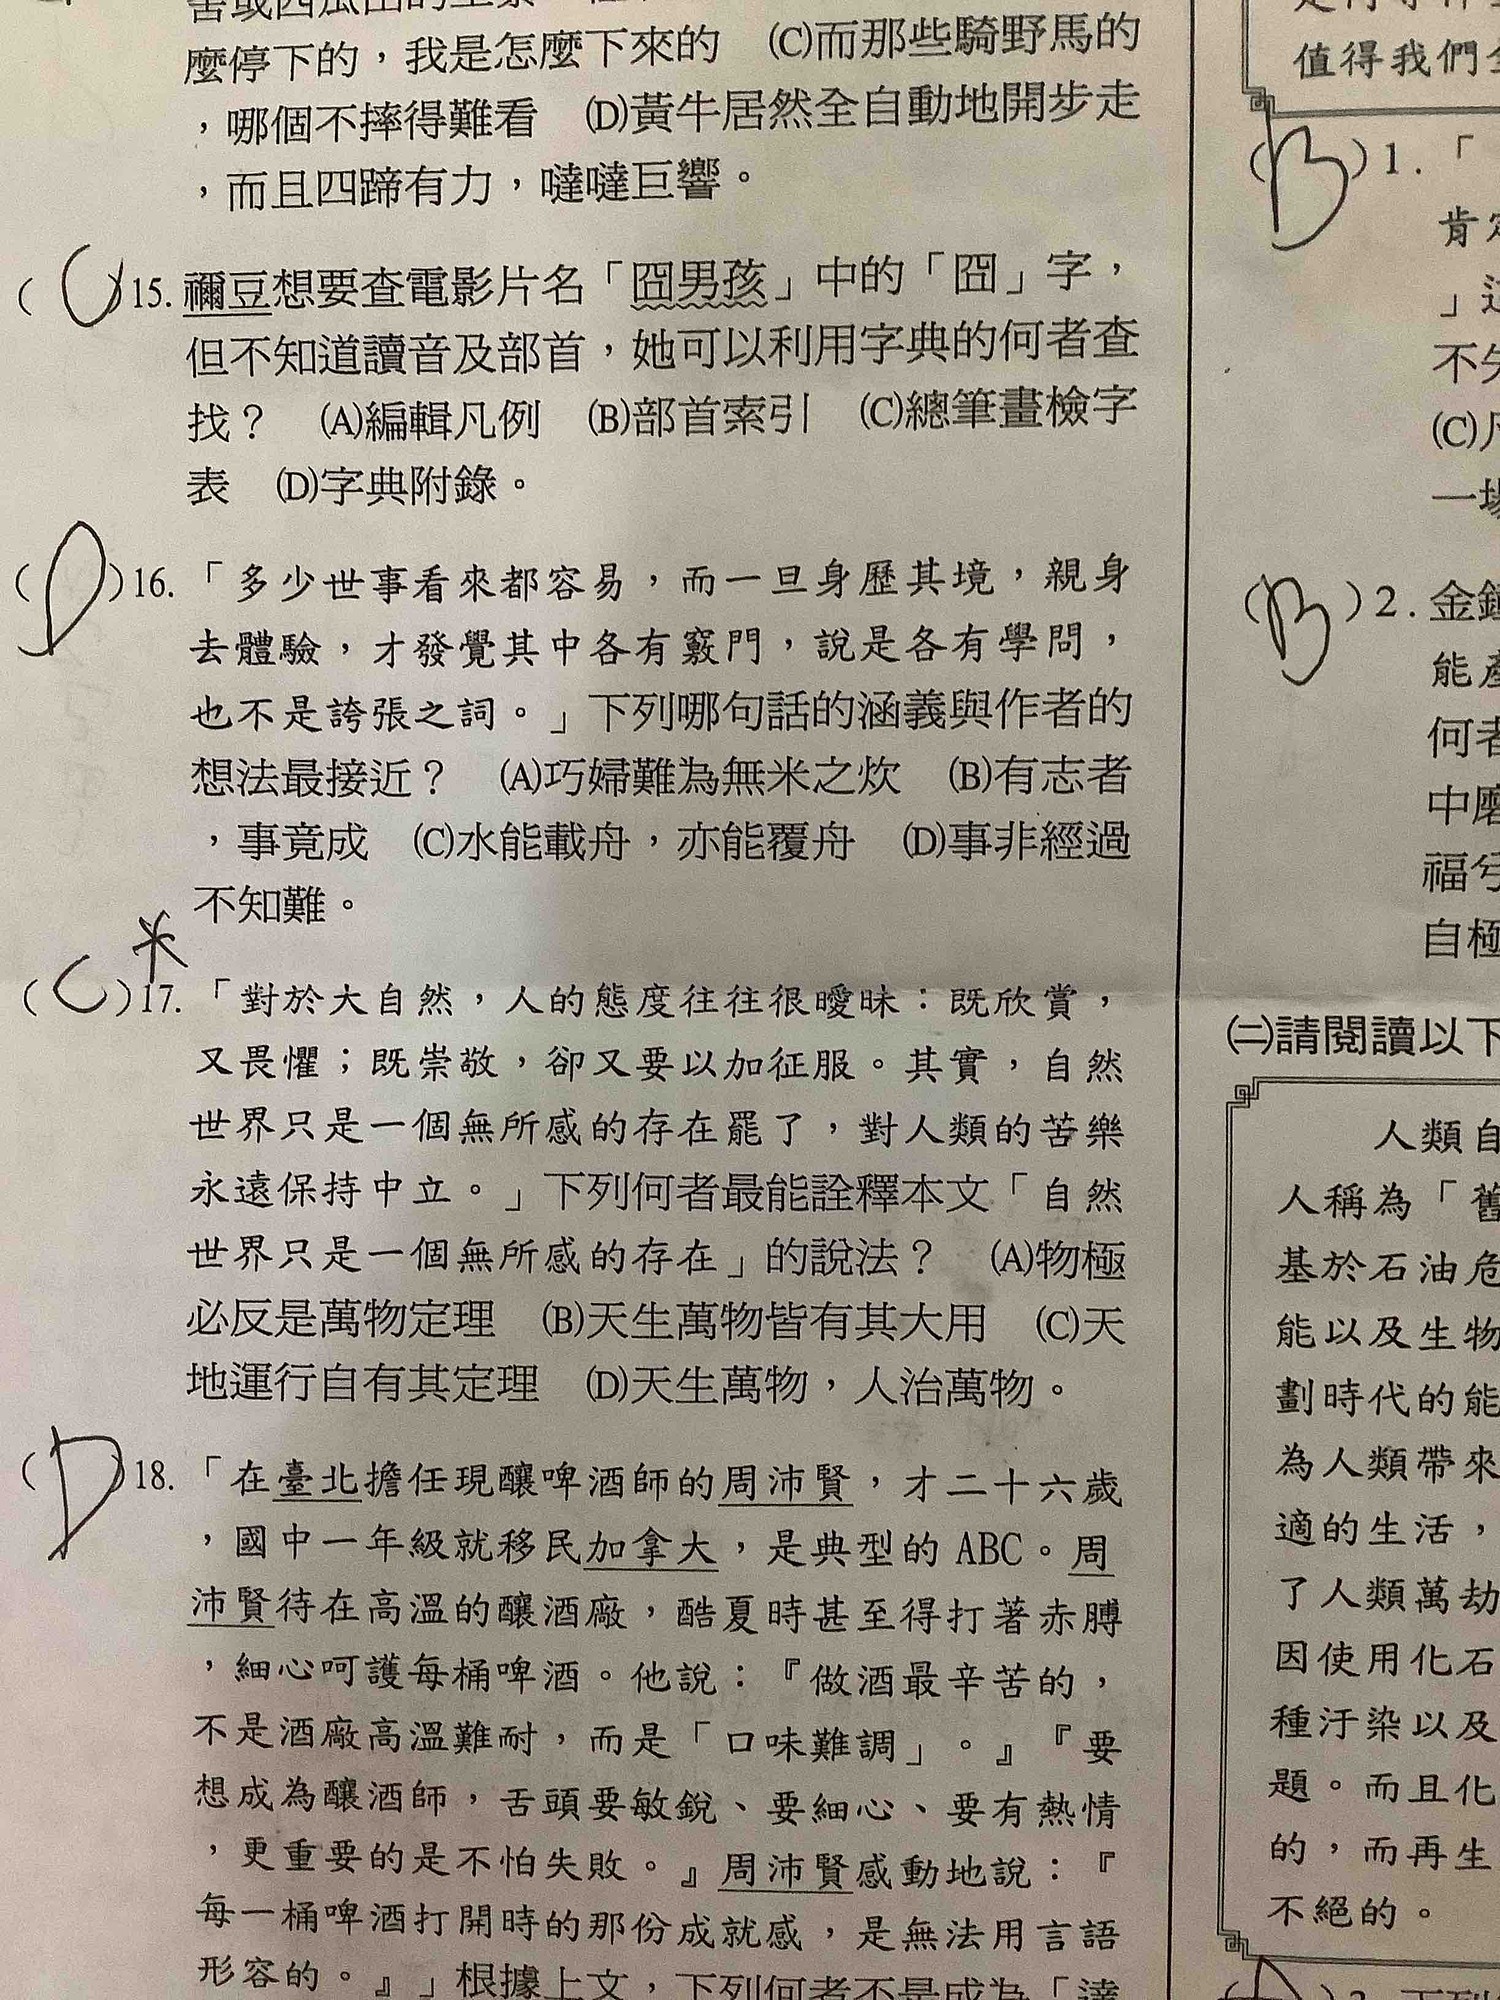 麼停下的，我是怎麼下來的　(C)而那些騎野馬的
，哪個不摔得難看　(D)黃牛居然全自動地開步走
，而且四蹄有力，噠噠巨響。
(C)15.禰豆想要查電影片名「囧男孩」中的「囧」字，
但不知道讀音及部首，她可以利用字典的何者查
找？　(A)編輯凡例　(B)部首索引　(C)總筆畫檢字
表　(D)字典附錄。
(D)16.「多少世事看來都容易，而一旦身歷其境，親身
去體驗，才發覺其中各有竅門，說是各有學問，
也不是誇張之詞。」下列哪句話的涵義與作者的
想法最接近？　(A)巧婦難為無米之炊　(B)有志者
，事竟成　(C)水能載舟，亦能覆舟　(D)事非經過
不知難。
(C)17.「對於大自然，人的態度往往很曖昧：既欣賞，
又畏懼；既崇敬，卻又要以加征服。其實，自然
世界只是一個無所感的存在罷了，對人類的苦樂
永遠保持中立。」下列何者最能詮釋本文「自然
世界只是一個無所感的存在」的說法？　(A)物極
必反是萬物定理　(B)天生萬物皆有其大用　(C)天
地運行自有其定理　(D)天生萬物，人治萬物。
(D)18.「在臺北擔任現釀啤酒師的周沛賢，才二十六歲
，國中一年級就移民加拿大，是典型的 ABC。周
沛賢待在高溫的釀酒廠，酷夏時甚至得打著赤膊
，細心呵護每桶啤酒。他說：『做酒最辛苦的，
不是酒廠高溫難耐，而是「口味難調」。』『要
想成為釀酒師，舌頭要敏銳、要細心、要有熱情
，更重要的是不怕失敗。』周沛賢感動地說：『
每一桶啤酒打開時的那份成就感，是無法用言語
形容的。』」根據上文，下列何者不是成為「達
值得我們
(B)1.「
肯
」
不
(C)
一場
(B)2.金
能產
何者
中磨
福兮
自極
㈡請閱讀以下
人類自
人稱為「舊
基於石油危
能以及生物
劃時代的能
為人類帶來
適的生活，
了人類萬劫
因使用化石
種汙染以及
題。而且化
的，而再生
不絕的。